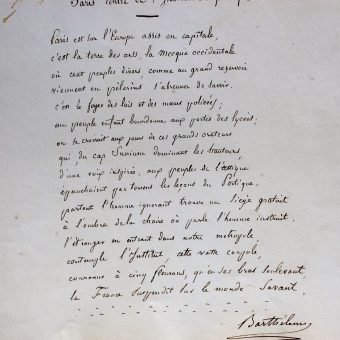 Paris centre de l'
Paris est sur l'Europe assis en capitale,
c'est la terre des arts, la Mecque occidentale
où cent peuples divers, comme au grand reservoir
viennent en pélerins s'abreuver de savoir.
c'est le foyer des lois et des mœurs policées;
un peuple enfant bourdonne aux portes des lycées;
on se croirait aux jours de ces grands orateurs
qui, du cap Sunium dominant les hauteurs,
d'une voix inspirée, aux peuples de l'Attique
épanchaient par torrens les leçons du Portique.
partout l'homme ignorant trouve un siège gratuit
à l'ombre de la chaire où parle l'homme instruit.
l'étranger en entrant dans notre métropole
contemple l'Institut, cette vaste coupole,
couronne à cinq fleurons, qu'en ses bras soulevant
la France suspendit sur le monde savant.
Barthélemy